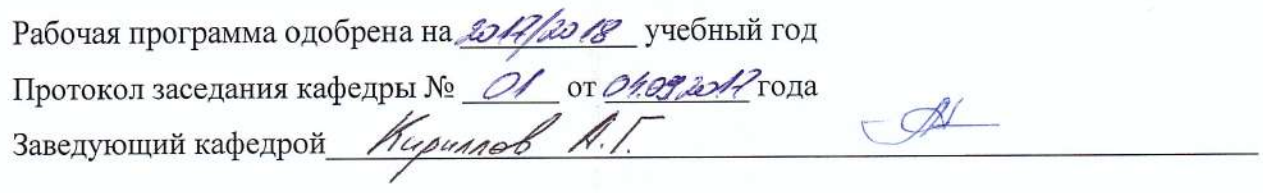 Рабочая программа одобрена на 2017/2018 учебный год
Протокол заседания кафедры № 01 от 04.09.2017 года
Заведующий кафедрой Кириллов А.Г.